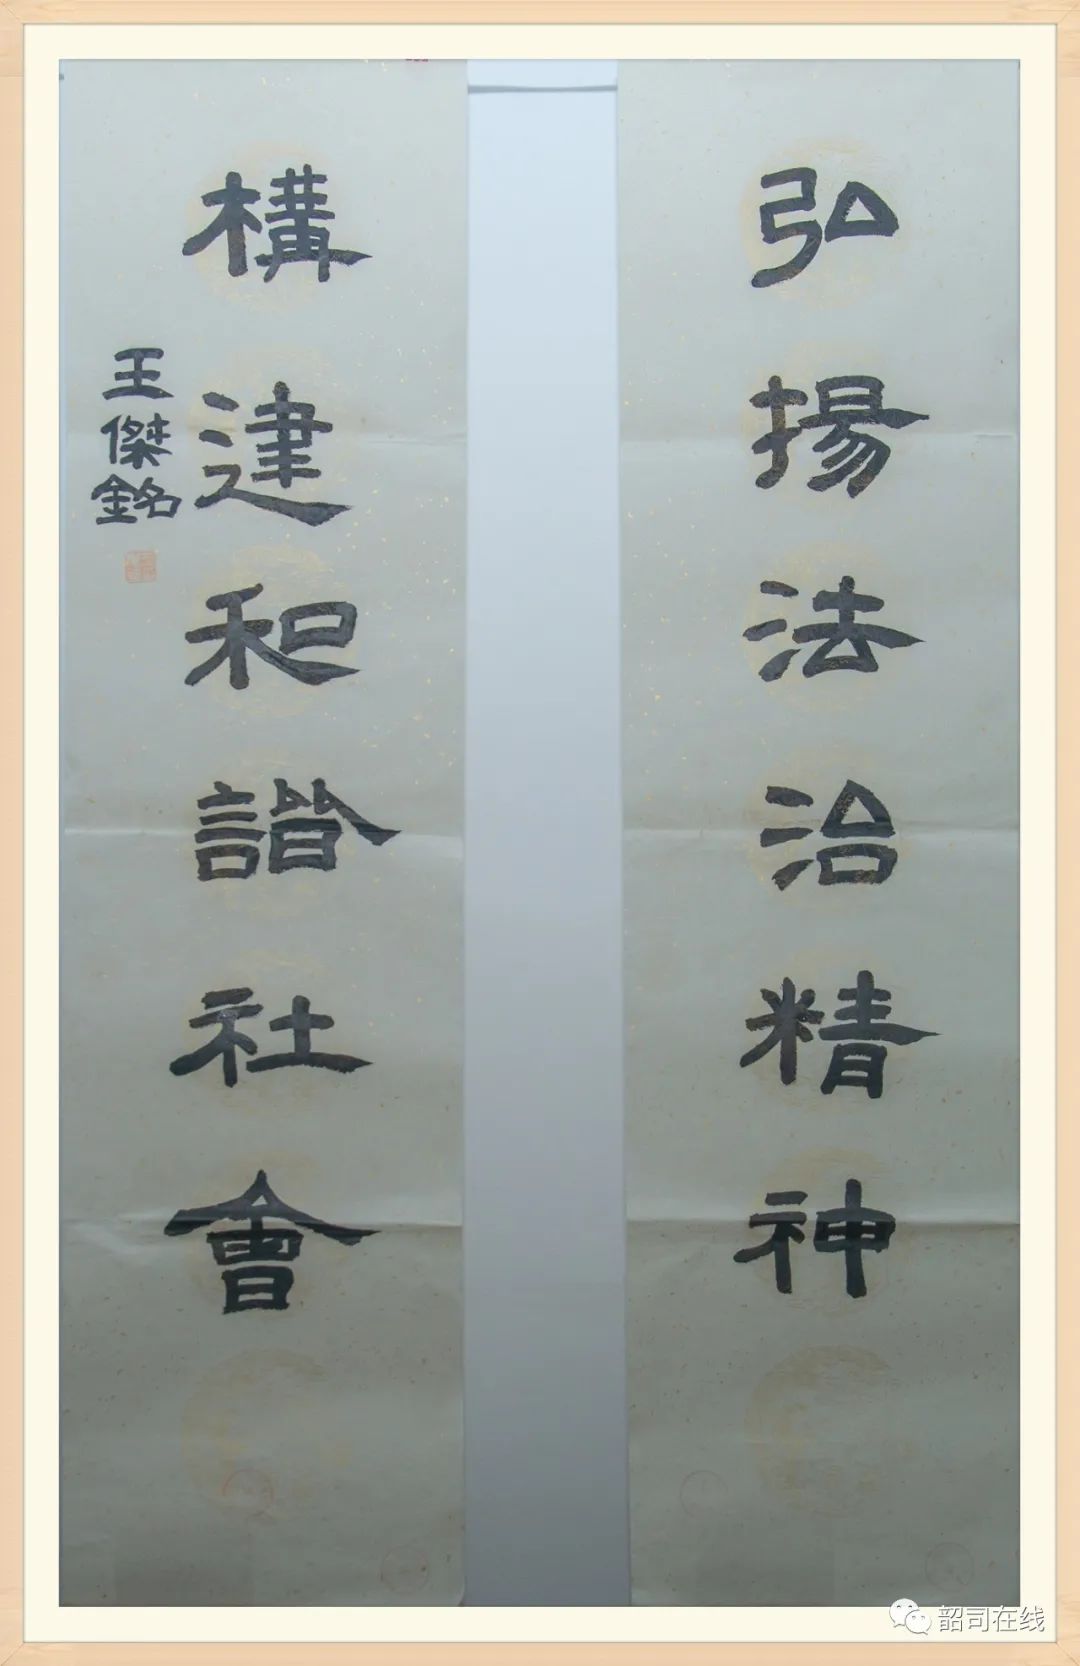 弘揚法治精神
構建和諧社會
王傑銘
韶司在线